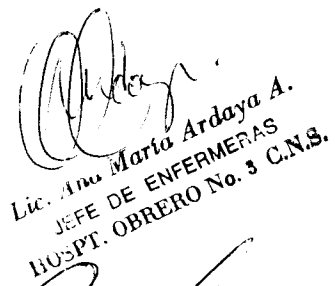 Lic. Ana Maria Ardaya A.
JEFE DE ENFERMERAS
HOSPT. OBRERO No. 3 C.N.S.